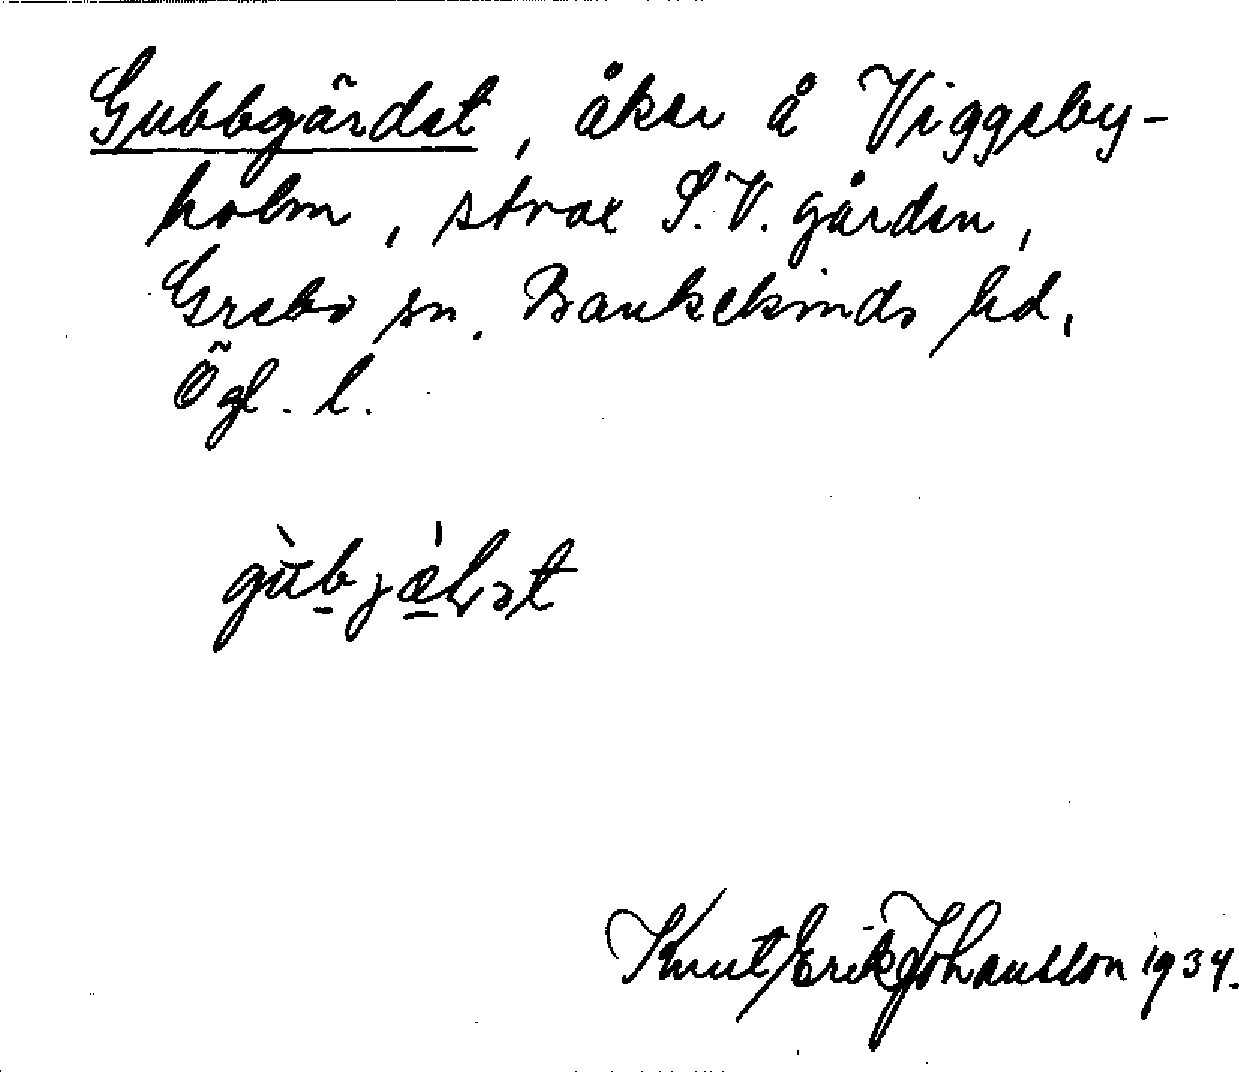 Gubbgärdet, åker å Viggeby-
holm, strax S.V. gården,
Grebo sn. Bankekinds hd,
Ögl. l.
Knut Erik Johansson 1934.